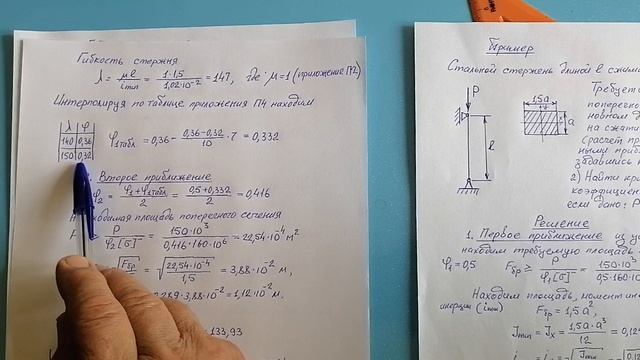 Гибкость стержня
λ = μl/i min = 1·1,5/1,02·10⁻² = 147, где μ=1 (приложение П2)
Интерполируя по таблице приложения П4 находим
λ φ
140 0,36
150 0,32
φ1табл. = 0,36 - 0,36-0,32/10 · 7 = 0,332
Второе приближение
φ2 = φ1+φ1табл/2 = 0,5+0,332/2 = 0,416
площадь поперечного сечения
P/φ2[σ] = 150·10³/0,416·160·10⁶ = 22,54·10⁻⁴ м²
√Fбр = √22,54·10⁻⁴/1,5 = 3,88·10⁻² м,
0,289·3,88·10⁻² = 1,12·10⁻² м.
133,93
Пример
Стальной стержень длиной l сжима
P
l
1,5a
a
Требует
поперечно
новном д
на сжати
(расчет пр
ными прибл
задавшись
2) Найти кри
коэффициен
если дано: P
Решение
1. Первое приближение
находим требуемую площадь
φ1 = 0,5
Fбр ≥ P/φ1[σ] = 150·10³/0,5·160
Находим площадь, момент ин
инерции (i min)
Fбр = 1,5a²,
Jmin = Jx = 1,5a·a³/12 = 0,12